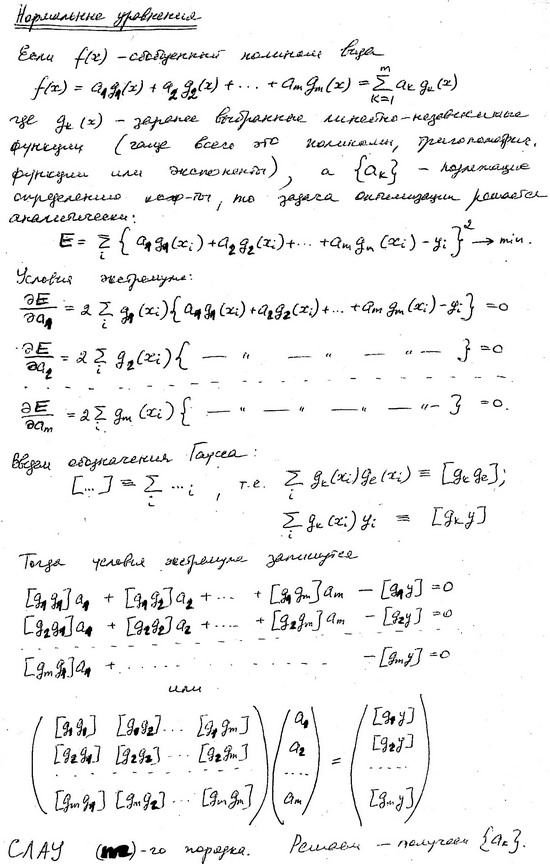 Нормальные уравнения
Если f(x) – обобщенный полином вида
f(x) = a₁g₁(x) + a₂g₂(x) + ... + aₘgₘ(x) = Σₖ₌₁ᵐ aₖgₖ(x)
где gₖ(x) – заранее выбранные линейно-независимые
функции (чаще всего это полиномы, тригонометрич.
функции или экспоненты), а {aₖ} – подлежащие
определению коэф-ты, то задача оптимизации решается
аналитически:
E = Σᵢ { a₁g₁(xᵢ) + a₂g₂(xᵢ) + ... + aₘgₘ(xᵢ) – yᵢ }² → min.
Условия экстремума:
∂E/∂a₁ = 2 Σᵢ g₁(xᵢ){a₁g₁(xᵢ) + a₂g₂(xᵢ) + ... + aₘgₘ(xᵢ) – yᵢ} = 0
∂E/∂a₂ = 2 Σᵢ g₂(xᵢ){ — " — — " — } = 0
∂E/∂aₘ = 2 Σᵢ gₘ(xᵢ){ — " — — " — — " — } = 0.
Введем обозначения Гаусса:
[...] ≡ Σᵢ ...ᵢ , т.е. Σᵢ gₖ(xᵢ)gₑ(xᵢ) ≡ [gₖgₑ];
Σᵢ gₖ(xᵢ)yᵢ ≡ [gₖy]
Тогда условия экстремума запишутся
[g₁g₁]a₁ + [g₁g₂]a₂ + ... + [g₁gₘ]aₘ – [g₁y] = 0
[g₂g₁]a₁ + [g₂g₂]a₂ + .... + [g₂gₘ]aₘ – [g₂y] = 0
[gₘg₁]a₁ + . . . . . . . . . . – [gₘy] = 0
или
( [g₁g₁] [g₁g₂] ... [g₁gₘ] ) ( a₁ ) ( [g₁y] )
( [g₂g₁] [g₂g₂] ... [g₂gₘ] ) ( a₂ ) = ( [g₂y] )
( [gₘg₁] [gₘg₂] ... [gₘgₘ] ) ( aₘ ) ( [gₘy] )
СЛАУ (m)-го порядка. Решаем – получаем {aₖ}.